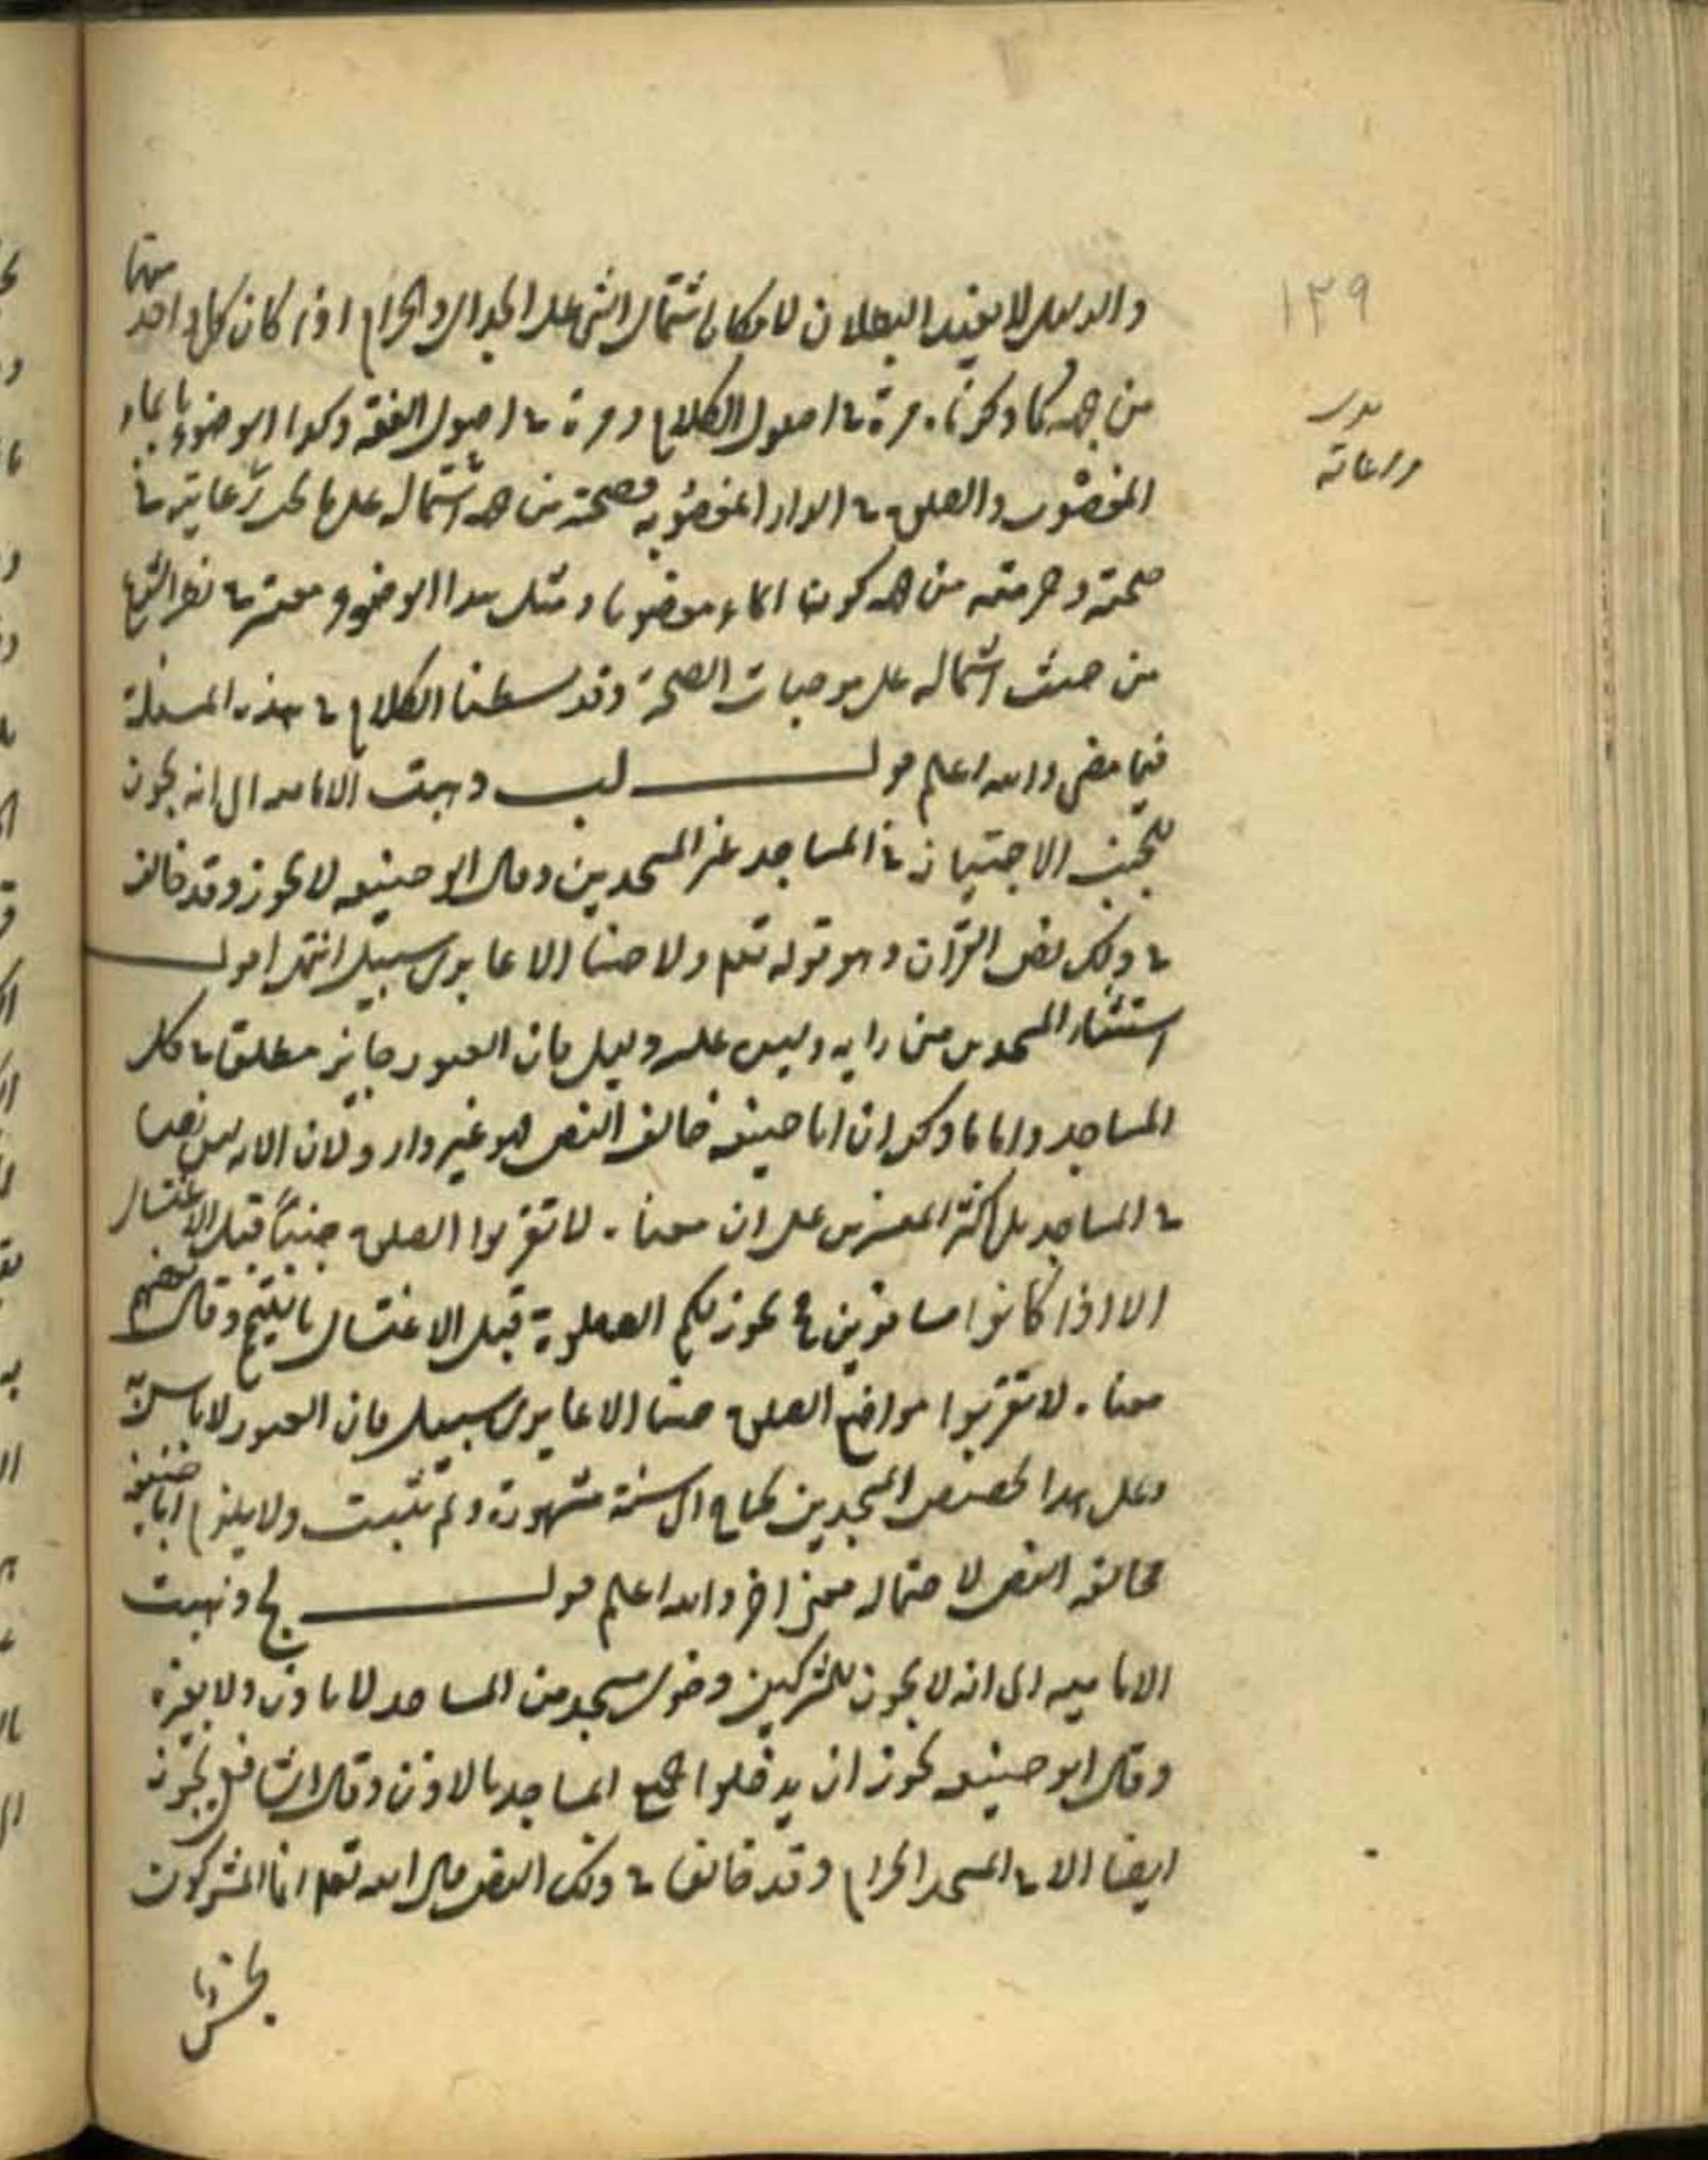 والدليل لا يفيد البطلان لامكان اشتمال الشي على الحلال والحرام اذا كان كل واحد منهما
من جهة كما ذكرنا مرة في اصول الكلام ومرة في اصول الفقه وكذا الوضوء بماء
المغصوب والصلوة في الدار المغصوبة فصحته من جهة اشتماله على ما يجب رعايته في
صحته وحرمته من جهة كون الماء مغصوبا ومثل هذا الوضوء معتبر في نظر الشرع
من حيث اشتماله على موجبات الصحة وقد بسطنا الكلام في هذه المسئلة
فيما مضى والله اعلم قوله لب ذهبت الامامية الى انه يجوز
للجنب الاجتياز في المساجد غير المسجدين وقال ابو حنيفه لا يجوز وقد خالف
في ذلك نص القرآن وهو قوله تعلم ولا جنبا الا عابري سبيل انتهى اقول
استثناء المسجدين من رايه وليس عليه دليل فان العبور جايز مطلقا في كل
المساجد واما ما ذكر ان ابا حنيفه خالف النص فهو غير وارد لان الاية ليس نصا
في المساجد بل اكثر المفسرين على ان معناه لا تقربوا الصلوة جنبا قبل الاغتسال
الا اذا كانوا مسافرين فح يجوز لكم الصلوة قبل الاغتسال بالتيمم وقال بعضهم
معناه لا تقربوا مواضع الصلوة جنبا الا عابري سبيل فان العبور لا باس به
وعلى هذا تخصيص المسجدين يحتاج الى سنة مشهورة ولم يثبت ولا يلزم ابا حنيفه
مخالفة النص لاحتماله معنى اخر والله اعلم قوله لج ذهبت
الاماميه الى انه لا يجوز للمشركين دخول مسجد من المساجد لا باذن ولا بغيره
وقال ابو حنيفه يجوز ان يدخلوا جميع المساجد بالاذن وقال الشافعي يجوز
ايضا الا في المسجد الحرام وقد خالفا في ذلك النص قال الله تعلم انما المشركون
١٣٩
مراعاته